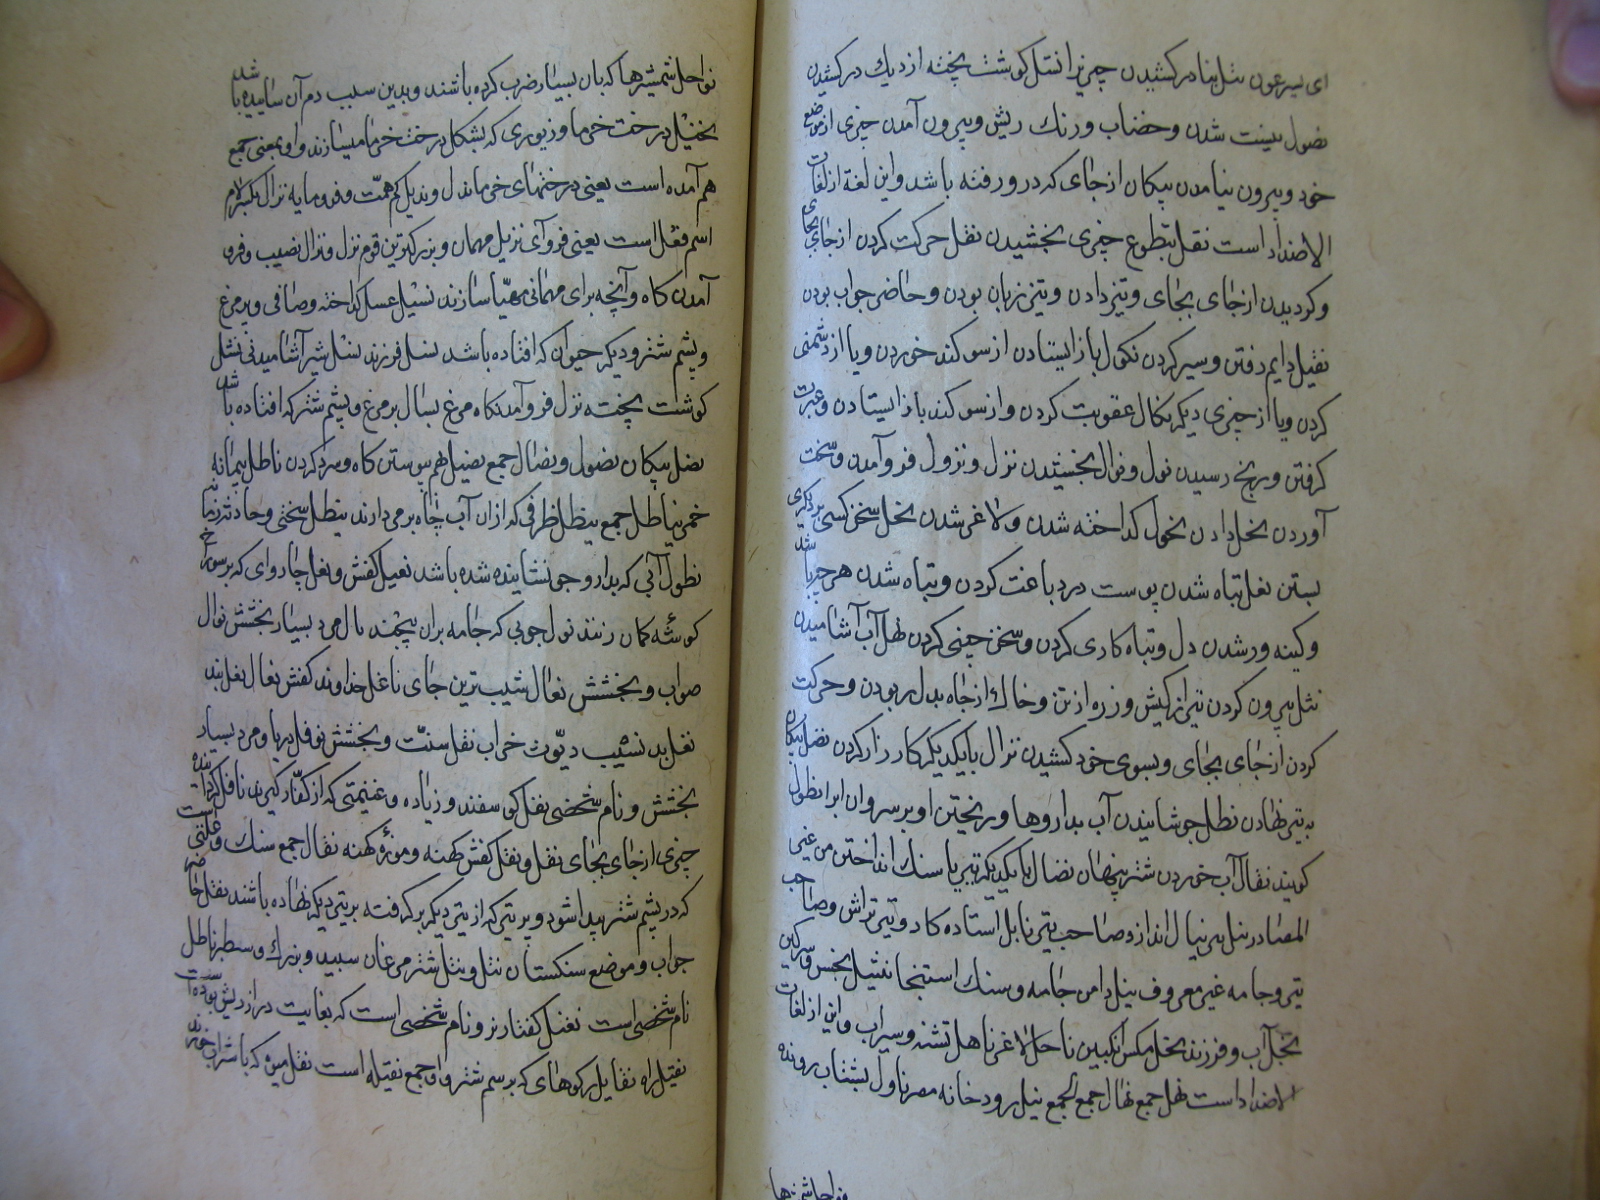 ای یسرعون نثل بنا مرکشیدن چیزی را نتشل کوشت پخته از دیك درکشیدن
نصول سست شدن وخضاب ورنك ریش وبیرون آمدن چیزی از موضع
خود وبیرون نیامدن پیکان ازجای که درو رفته باشد واین لغة ازلغات
الاضداد است نفل بتطوع چیزی بخشیدن نقل حرکت کردن ازجای بجای
وکردیدن ازجای بجای وتیز دادن وتیز زبان بودن وحاضر جواب بودن
نقیل دایم رفتن وسیر کردن نکول باز ایستادن از سوکند خوردن ویا از دشمنی
کردن ویا از چیزی دیکر نکال عقوبت کردن واز سوکند باز ایستادن وعبرت
کرفتن وبرنج رسیدن نول ونوال بخشیدن نزل ونزول فرو آمدن وسخت
آوردن نحل دادن نحول کداخته شدن ولاغر شدن نحل سخن کسی بر دیکری
بستن نغل تباه شدن پوست در دباغت کردن وتباه شدن هر چیز باشد
وکینه ور شدن دل وتباه کاری کردن وسخن چینی کردن نهل آب آشامیدن
نثل بیرون کردن تیر از کیش وزره از تن وخاك از چاه بدر بودن وحرکت
کردن ازجای بجای وبسوی خود کشیدن نزال بایکدیکر کارزار کردن نصل پیکان
به تیر نهادن نطل جوشانیدن آب بداروها وریختن او بر سر وآن را نطول
کویند نقال آب خوردن شتر پنهان نضال بایکدیکر تیر یا سنك انداختن من غیر
المصادر نبل تیر نبال تیرانداز وصاحب تیر نابل استاده کار وتیر تراش وصاحب
تیر وجامه غیر معروف نیل دامن جامه وسنك استنجا نثیل نجس وسرکین
نجل آب وفرزند نحل مکس انکبین ناحل لاغر ناهل تشنه وسیراب واین ازلغات
الاضداد است نهل جمع نهال جمع الجمع نیل رودخانه مصر ناول بشتاب رونده
نواحل شمشیرها
نواحل شمشیرها که بان بسیار ضرب کرده باشند وبدین سبب دم آن ساییده باشد
نخیل درخت خرما وزیوری که بشکل درخت خرما میسازند واو بمعنی جمع
هم آمده است یعنی درختهای خرما نذل ونذیل کم همت وفرومایه نزال بکسر لام
اسم فعل است یعنی فرو آی نزیل مهمان وبزرکترین قوم نزل ونزال نصیب وفرو
آمدن کاه وآنچه برای مهمانی مهیا سازند نسیل عسل کداخته وصافی وپر مرغ
وپشم شتر ودیکر حیوان که افتاده باشد نسل فرزند نسل شیر آشامیدنی نشل
کوشت پخته نزل فرو آمدنکاه مرغ نسال پر مرغ وپشم شتر که افتاده باشد
نصل پیکان نصول ونصال جمع نصیل هم پیوستن کاه وسر وکردن ناطل پیمانه
خمر نیاطل جمع نیطل ظرفی که ازان آب چاه بر می دارند نیطل سختی وحادثه
نطول آبی که بدارو جوشانیده شده باشد نعیل کفش ونعل چاروای که بر سر
کوشه کمان زنند نول چوبی که جامه بران پیچند نال مرد بسیار بخشش نوال
صواب وبخشش نعال شیب ترین جای ناعل خداوند کفش نعال نعل بند
نغل بد نسب دیوث خراب نفل سنت وبخشش نوفل دریا ومرد بسیار
بخشش ونام شخصی نفل کوسفند وزیاده وغنیمتی که از کفار کیرند ناقل کرداننده
چیزی ازجای بجای نقل ونقل کفش کهنه وموزۀ کهنه نقال جمع سنك وعلتی است
که در پشم شتر پیدا شود وپر تیر که از تیر دیکر بر کرفته بر تیر دیکر نهاده باشند نقل حاضر
جواب وموضع سنکستان نثل ونثل شتر مرغان سپید وبزرك وسطبر ناطل
نام شخصی است نعثل کفتار نر ونام شخصی است که بغایت دراز ریش بوده است
نقیل راه نقایل رکوهای که بر سم شتر واو جمع نقیله است نقل میوه که با شراب خورند